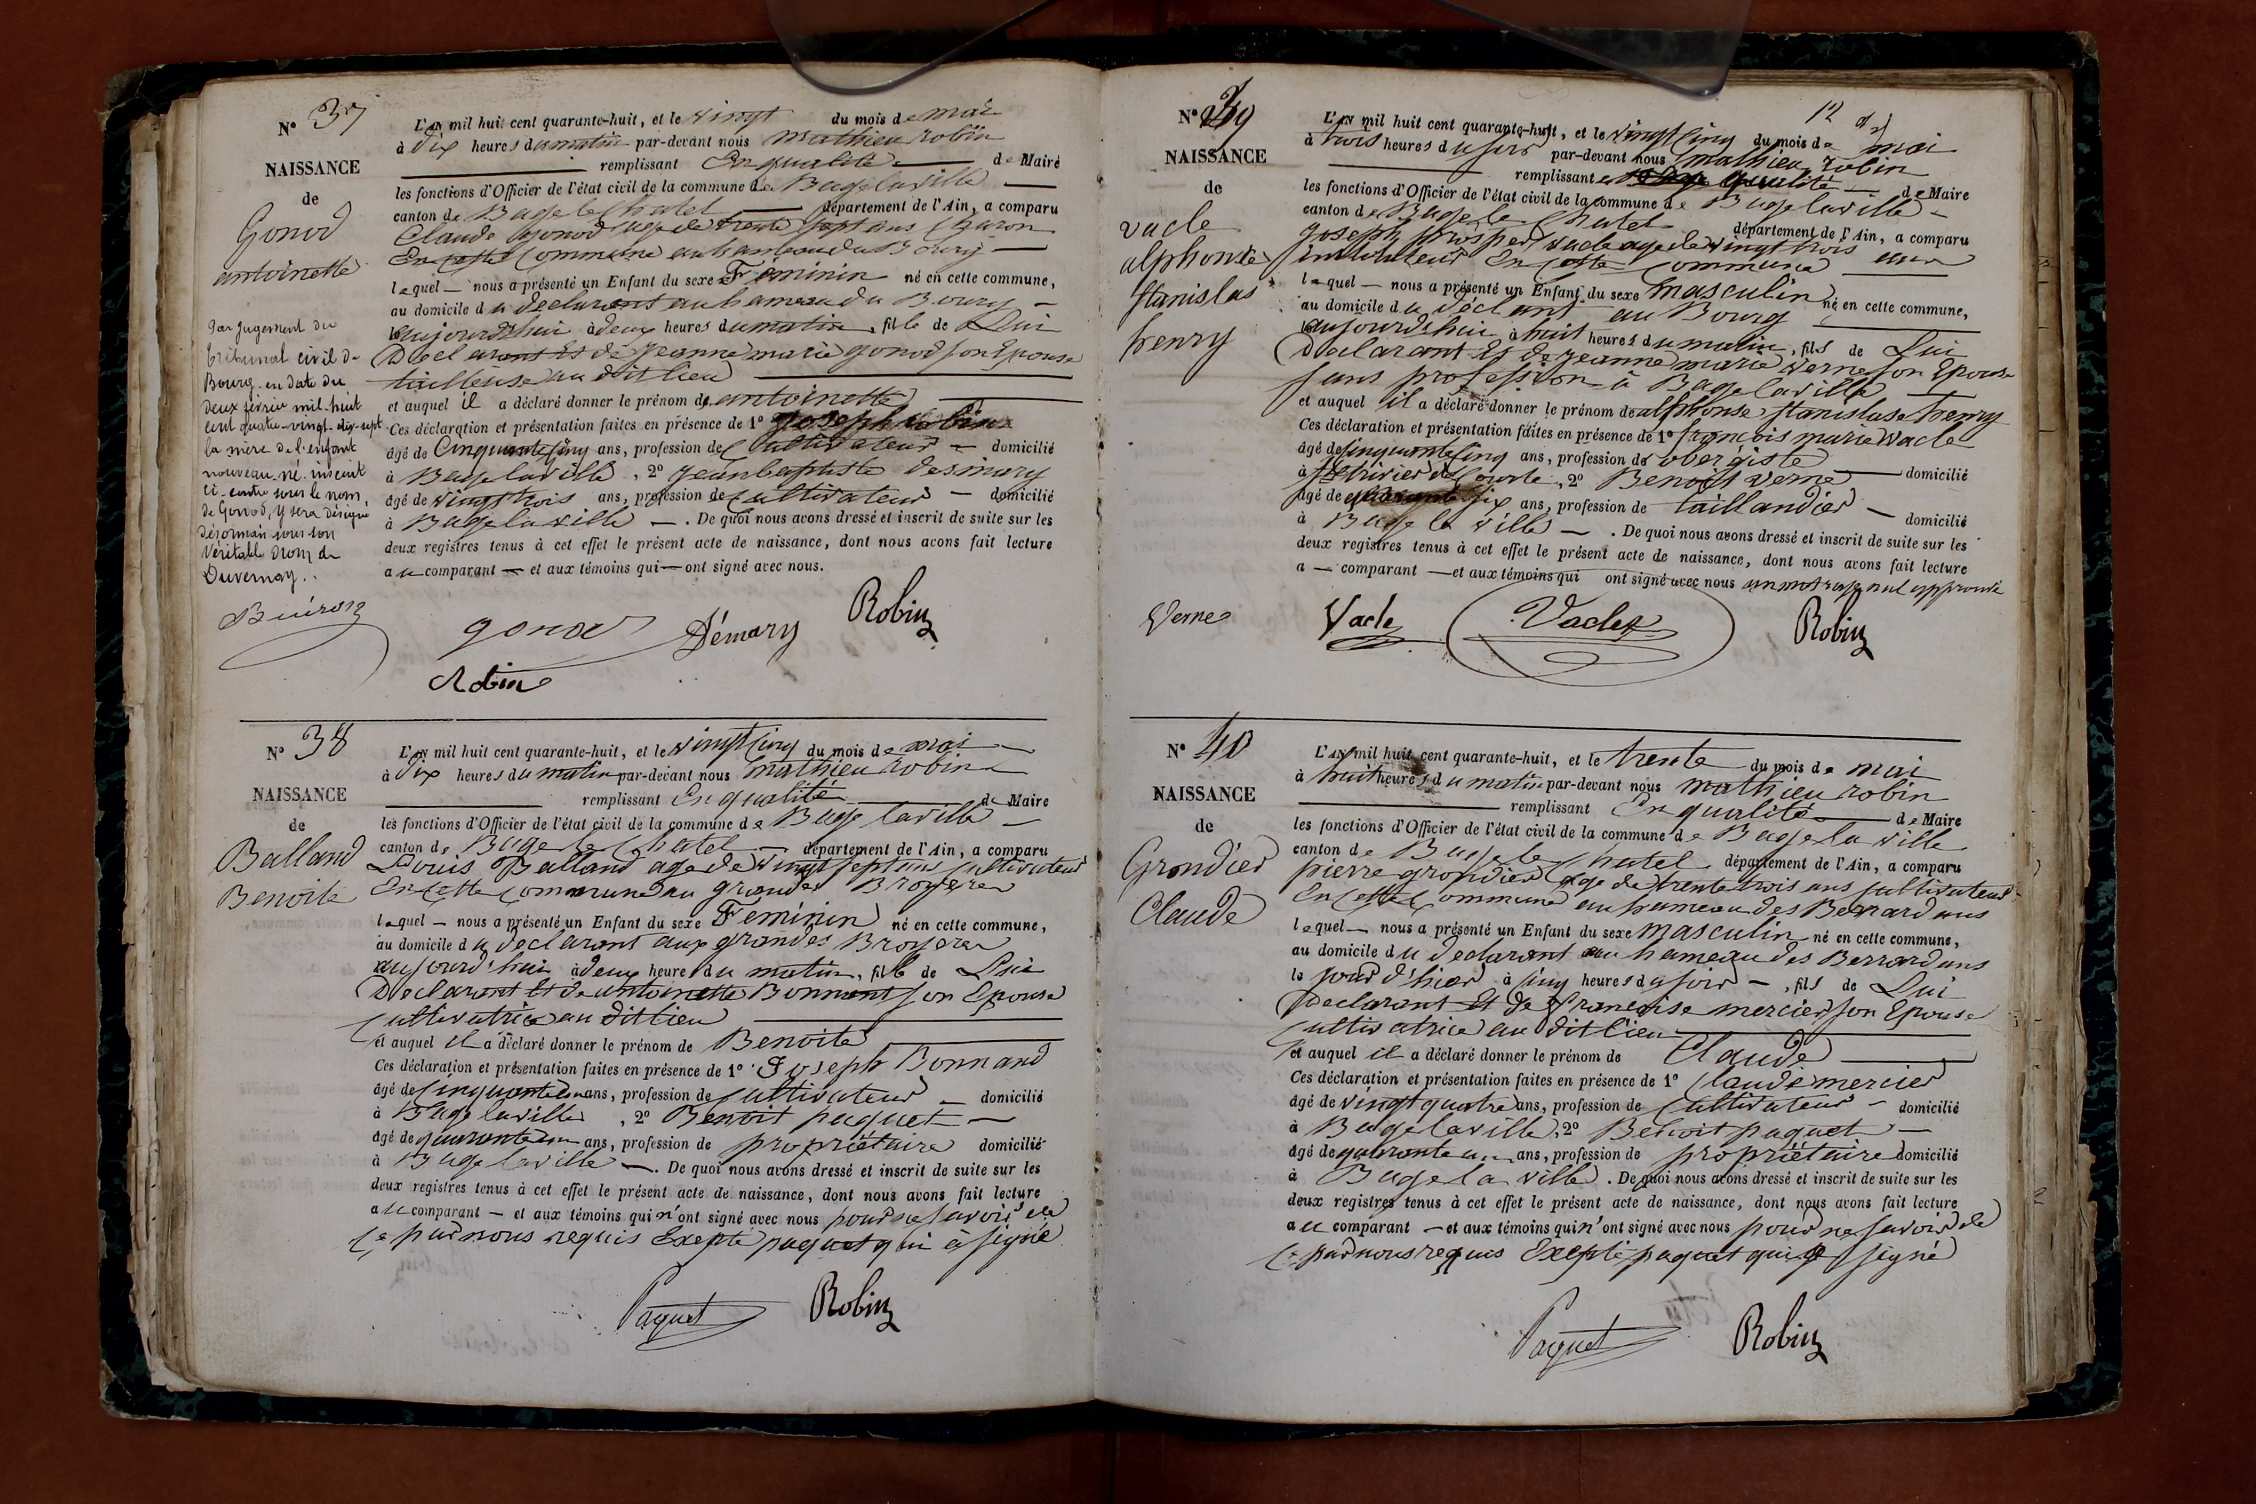 N° 37
NAISSANCE
de
Gonod
antoinette
L'AN mil huit cent quarante-huit, et le vingt du mois de mai
à dix heures du matin par-devant nous Mathieu robin
remplissant En qualité de Maire
les fonctions d'Officier de l'état civil de la commune de Bage la ville
canton de Bage le Chatel département de l'Ain, a comparu
Claude Gonod age de trente sept ans Charon
En cette Commune au hameau du Bourg
lequel nous a présenté un Enfant du sexe Féminin né en cette commune,
au domicile du declarant au hameau du Bourg
aujourdhui à deux heures du matin, fille de Lui
Declarant Et de jeanne marie gonod son Epouse
tailleuse au dit lieu
et auquel il a déclaré donner le prénom de antoinette
Ces déclaration et présentation faites en présence de 1° joseph robin
âgé de Cinquante cinq ans, profession de Cultivateur domicilié
à Bage la ville, 2° jean baptiste desmary
âgé de vingt trois ans, profession de Cultivateur domicilié
à Bage la ville. De quoi nous avons dressé et inscrit de suite sur les
deux registres tenus à cet effet le présent acte de naissance, dont nous avons fait lecture
au comparant et aux témoins qui ont signé avec nous.
par jugement du
tribunal civil de
Bourg en date du
deux février mil-huit
cent quatre-vingt-dix-sept
la mère de l'enfant
nouveau-né inscrit
ci-contre sous le nom
de Gonod, y sera désigné
désormais sous son
véritable nom de
Duvernay.
gonod Démary Robin
Robin
N° 38
NAISSANCE
de
Balland
Benoite
L'AN mil huit cent quarante-huit, et le vingt Cinq du mois de mai
à dix heures du matin par-devant nous mathieu robin
remplissant En qualité de Maire
les fonctions d'Officier de l'état civil de la commune de Bage la ville
canton de Bage le Chatel département de l'Ain, a comparu
Louis Balland age de vingt sept ans Cultivateur
En cette Commune au grandes Broyeres
lequel nous a présenté un Enfant du sexe Feminin né en cette commune,
au domicile du declarant aux grandes Broyeres
aujourd'hui à deux heures du matin, fille de Lui
Declarant Et de antoinette Bonnent son Epouse
Cultivatrice au dit lieu
et auquel il a déclaré donner le prénom de Benoite
Ces déclaration et présentation faites en présence de 1° Joseph Bonnand
âgé de Cinquante un ans, profession de Cultivateur domicilié
à Bage la ville, 2° Benoit paquet
âgé de quarante un ans, profession de propriétaire domicilié
à Bage la ville. De quoi nous avons dressé et inscrit de suite sur les
deux registres tenus à cet effet le présent acte de naissance, dont nous avons fait lecture
au comparant et aux témoins qui n'ont signé avec nous pour ne savoir de
ce par nous requis Excepté paquet qui à signé
Paquet Robin
12
N° 39
NAISSANCE
de
vacle
alphonse
stanislas
henry
L'AN mil huit cent quarante-huit, et le vingt Cinq du mois de mai
à trois heures du soir par-devant nous mathieu robin
remplissant qualité de Maire
les fonctions d'Officier de l'état civil de la commune de Bage la ville
canton de Bage le Chatel département de l'Ain, a comparu
joseph prosper vacle age de vingt trois ans
instituteur En cette Commune
lequel nous a présenté un Enfant du sexe masculin né en cette commune,
au domicile du déclarant au Bourg
aujourd'hui à huit heures du matin, fils de Lui
Declarant Et de jeanne marie verne son Epouse
sans profession à Bage la ville
et auquel il a déclaré donner le prénom de alphonse stanislas henry
Ces déclaration et présentation faites en présence de 1° françois marie vacle
âgé de Cinquante Cinq ans, profession de obergiste domicilié
à St trivier de Courte, 2° Benoit verne
âgé de quarante six ans, profession de taillandier domicilié
à Bage la ville. De quoi nous avons dressé et inscrit de suite sur les
deux registres tenus à cet effet le présent acte de naissance, dont nous avons fait lecture
a comparant et aux témoins qui ont signé avec nous un mot rayé nul approuvé
Verne Vacle Vacle Robin
N° 40
NAISSANCE
de
Grondier
Claude
L'AN mil huit cent quarante-huit, et le trente du mois de mai
à huit heures du matin par-devant nous mathieu robin
remplissant En qualité de Maire
les fonctions d'Officier de l'état civil de la commune de Bage la ville
canton de Bage le Chatel département de l'Ain, a comparu
pierre grondier age de trente trois ans Cultivateur
En cette Commune au hameau des Berrardans
lequel nous a présenté un Enfant du sexe masculin né en cette commune,
au domicile du declarant au hameau des Berrardans
le jour d'hier à cinq heures du soir, fils de Lui
Declarant Et de Francoise mercier son Epouse
Cultivatrice au dit lieu
et auquel il a déclaré donner le prénom de Claude
Ces déclaration et présentation faites en présence de 1° Claude mercier
âgé de vingt quatre ans, profession de Cultivateur domicilié
à Bage la ville, 2° Benoit paquet
âgé de quarante un ans, profession de propriétaire domicilié
à Bage la ville. De quoi nous avons dressé et inscrit de suite sur les
deux registres tenus à cet effet le présent acte de naissance, dont nous avons fait lecture
au comparant et aux témoins qui n'ont signé avec nous pour ne savoir de
ce par nous requis Excepté paquet qui a signé
Paquet Robin